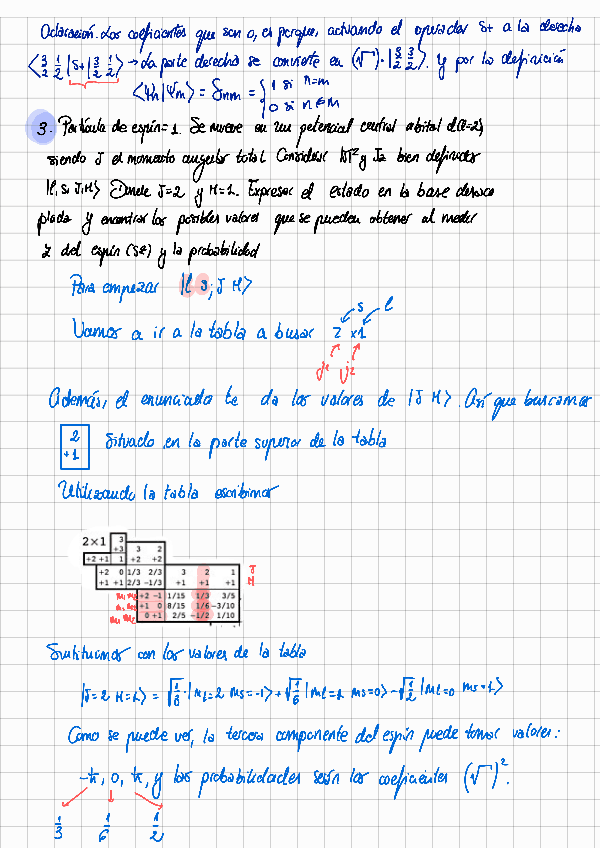 Aclaración. Los coeficientes que son 0, es porque, actuando el operador S+ a la derecha
⟨3/2 1/2 |S+| 3/2 1/2⟩ → La parte derecha se convierte en (√ )·|3/2 3/2⟩. Y por la definición
⟨Ψn|Ψm⟩ = δnm = { 1 si n=m
0 si n≠m
3. Partícula de espín=1. Se mueve en un potencial central orbital d(l=2),
siendo J el momento angular total. Considerar |J|² y Jz bien definidos
|l, s, J, M⟩ Donde J=2 y M=1. Expresar el estado en la base desaco
plada y encontrar los posibles valores que se pueden obtener al medir
z del espín (Sz) y la probabilidad
Para empezar |l s; J M⟩
s l
Vamos a ir a la tabla a buscar 2 x1
j1 j2
Además, el enunciado te da los valores de |J M⟩. Así que buscamos
2
+1 Situado en la parte superior de la tabla
Utilizando la tabla escribimos
2×1 3
+3 3 2
+2 +1 1 +2 +2
+2 0 1/3 2/3 3 2 1 J
+1 +1 2/3 −1/3 +1 +1 +1 M
m1 m2 +2 −1 1/15 1/3 3/5
m1 m2 +1 0 8/15 1/6 −3/10
m1 m2 0 +1 2/5 −1/2 1/10
Sustituimos con los valores de la tabla
|J=2 M=1⟩ = √1/6 · |ml=2 ms=-1⟩ + √1/6 |ml=1 ms=0⟩ - √1/2 |ml=0 ms=1⟩
Como se puede ver, la tercera componente del espín puede tomar valores:
-ħ, 0, ħ, y las probabilidades serán los coeficientes (√ )².
1/3 1/6 1/2